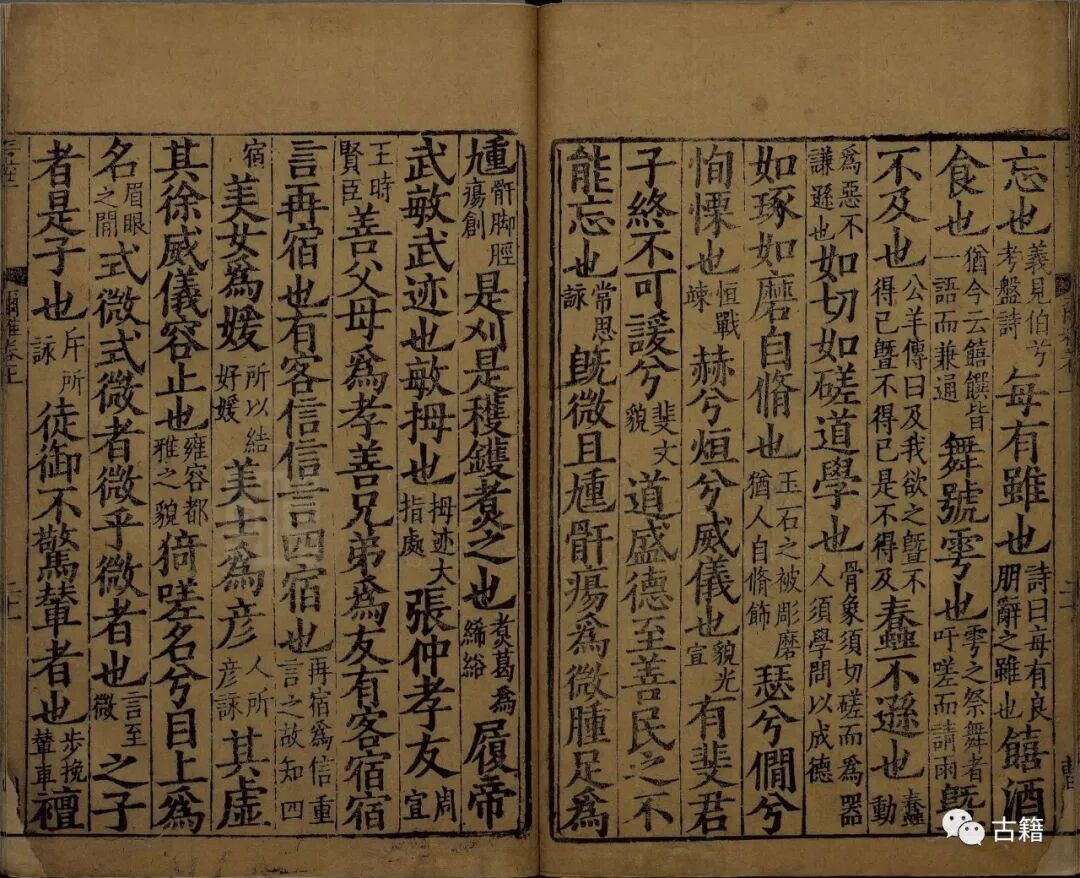 忘也義見伯兮考盤詩每有雖也詩曰每有良朋辭之雖也饎酒
食也猶今云饎饌皆一語而兼通舞號雩也雩之祭舞者吁嗟而請雨曁
不及也公羊傳曰及我欲之曁不得已曁不得已是不得及蠢不遜也蠢動
為惡不謙遜也如切如磋道學也骨象須切磋而為器人須學問以成德
如琢如磨自脩也玉石之被彫磨猶人自脩飾瑟兮僩兮
恂慄也恒戰竦赫兮烜兮威儀也貌光宣有斐君
子終不可諼兮斐文貌道盛德至善民之不
能忘也常思詠既微且尰骭瘍為微腫足為
尰骭脚脛瘍創是刈是穫鑊煑之也煑葛為絺綌履帝
武敏武迹也敏拇也拇迹大指處張仲孝友周宣
王時賢臣善父母為孝善兄弟為友有客宿宿
言再宿也有客信信言四宿也再宿為信重言之故知四
宿美女為媛所以結好媛美士為彦人所彦詠其虛
其徐威儀容止也雍容都雅之貌猗嗟名兮目上為
名眉眼之間式微式微者微乎微者也言至微之子
者是子也斥所詠徒御不驚輦者也步挽輦車襢
爾雅卷上
古籍